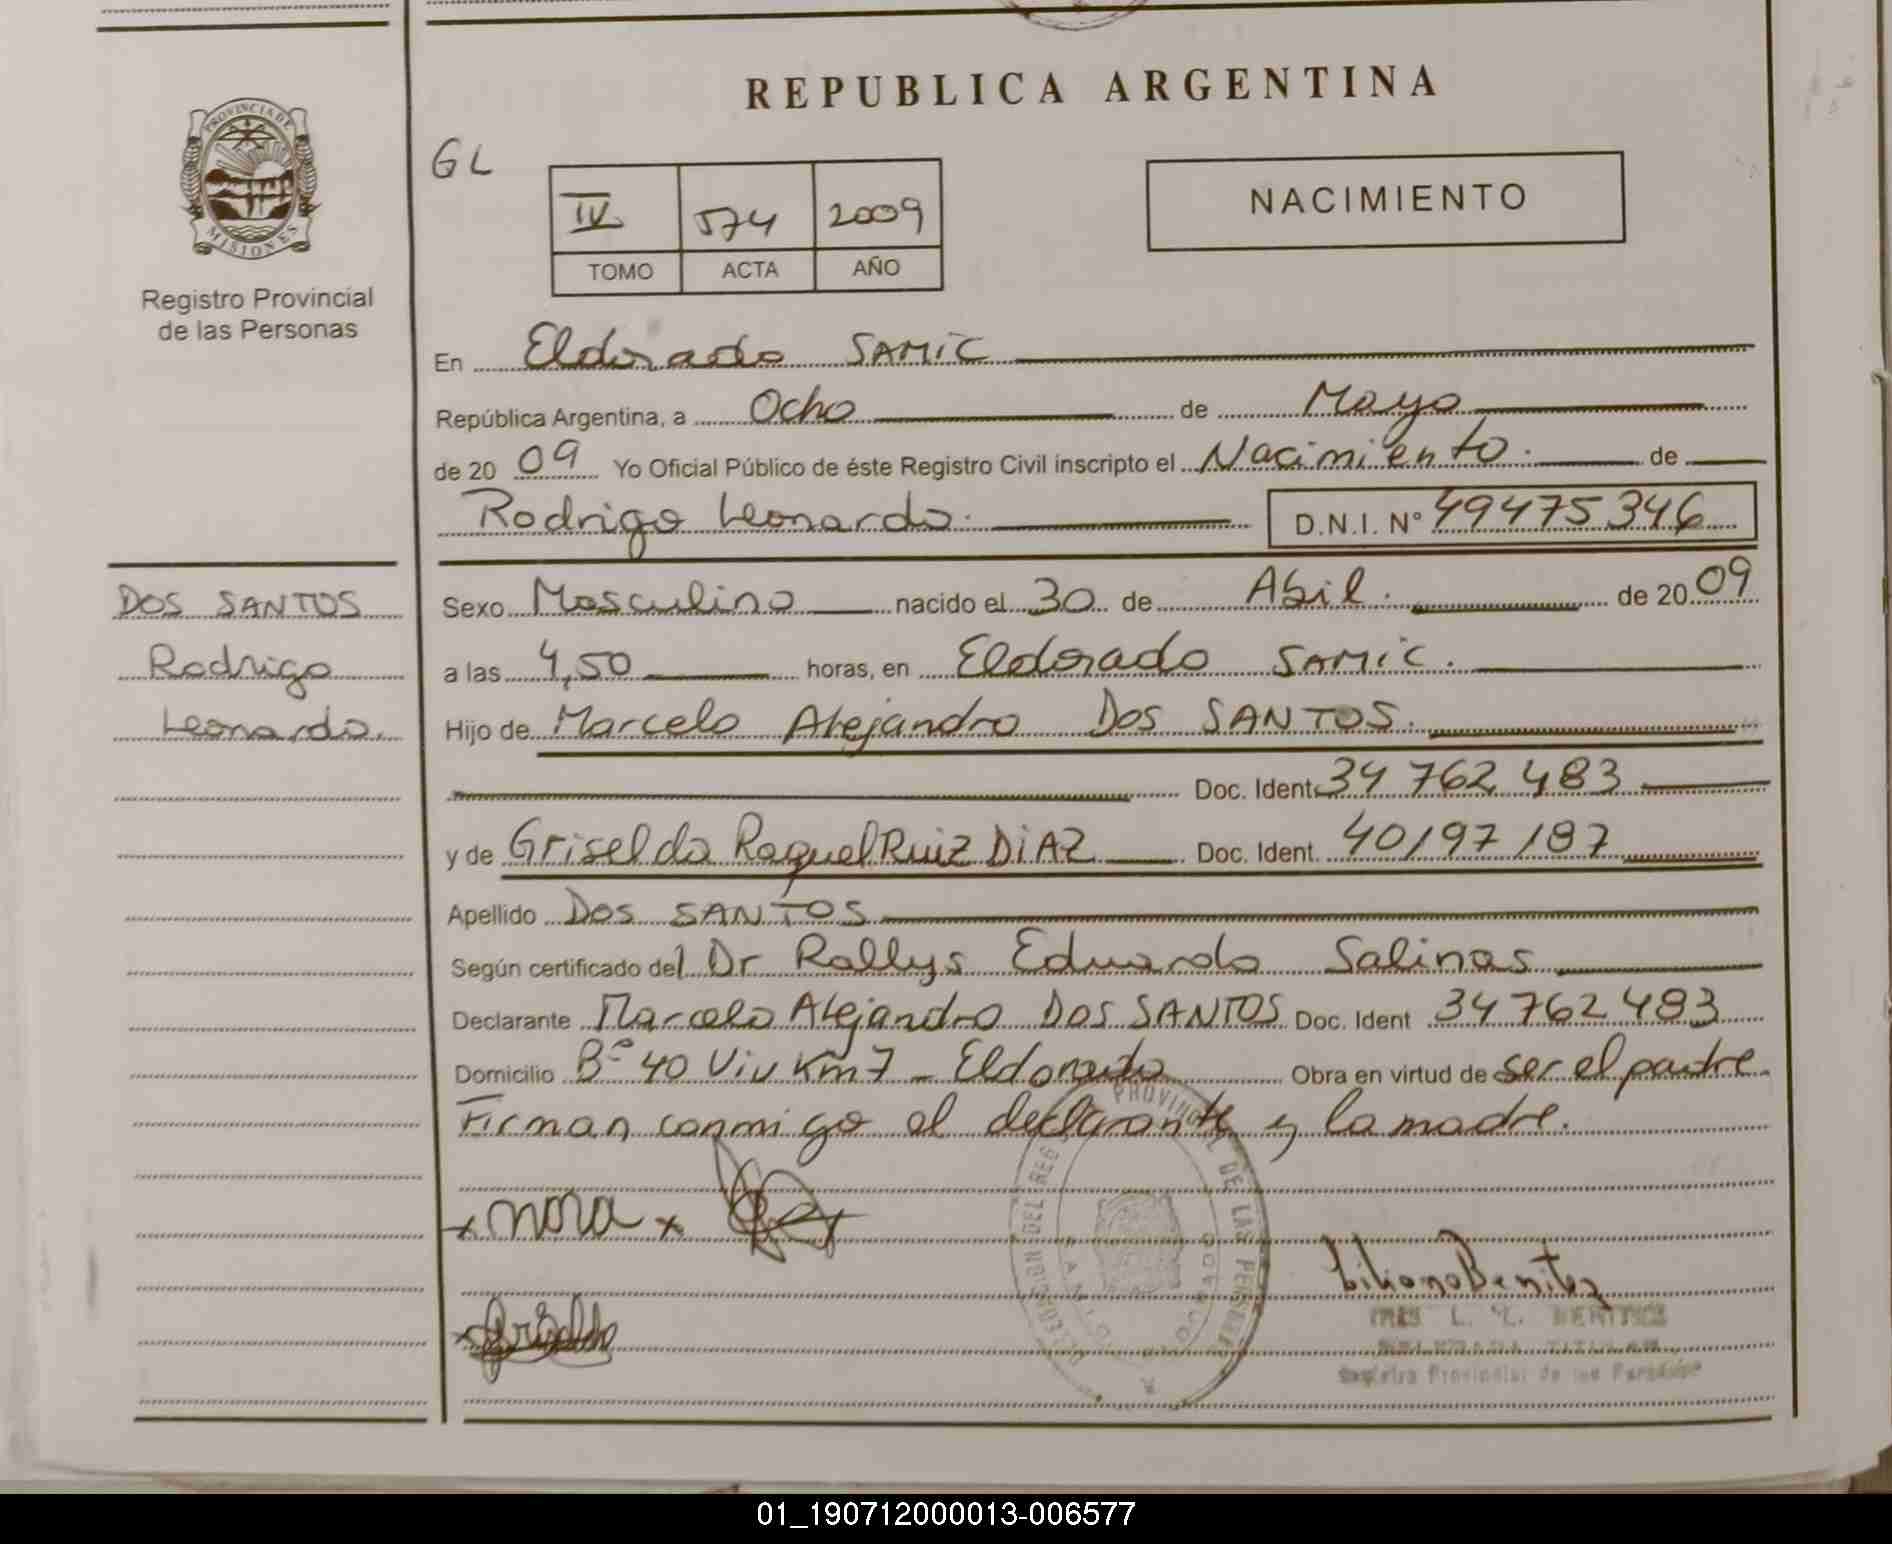 REPUBLICA ARGENTINA
PROVINCIA DE MISIONES
Registro Provincial
de las Personas
GL
IV 574 2009
TOMO ACTA AÑO
NACIMIENTO
En Eldorado SAMIC
República Argentina, a Ocho de Mayo
de 20 09 Yo Oficial Público de éste Registro Civil inscripto el Nacimiento. de
Rodrigo Leonardo. D.N.I. N° 49475346
DOS SANTOS
Rodrigo
Leonardo.
Sexo Masculino nacido el 30 de Abil. de 20 09
a las 4,50 horas, en Eldorado SAMIC.
Hijo de Marcelo Alejandro DOS SANTOS.
Doc. Ident. 34 762 483
y de Griselda Raquel RUIZ DIAZ Doc. Ident. 40197187
Apellido DOS SANTOS
Según certificado del Dr Rallys Eduardo Salinas
Declarante Marcelo Alejandro DOS SANTOS Doc. Ident 34 762 483
Domicilio B° 40 Viv Km 7 - Eldorado Obra en virtud de ser el padre.
Firman conmigo el declarante y la madre.
x nora x
x Griselda
Liliana Benitez
L. BENITEZ
TITULAR
Registro Provincial de las Personas
DIRECCION DEL REG PROVINCIAL DE LAS PERSONAS
ELDORADO
01_190712000013-006577